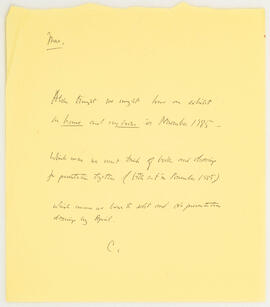 Mrs.
thought we might have an exhibit
in house and in November 1985 –
Which means we must think of book and drawings
for presentation together (both out in November 1985).
which means we have to edit and do presentation
drawings by April.
C.